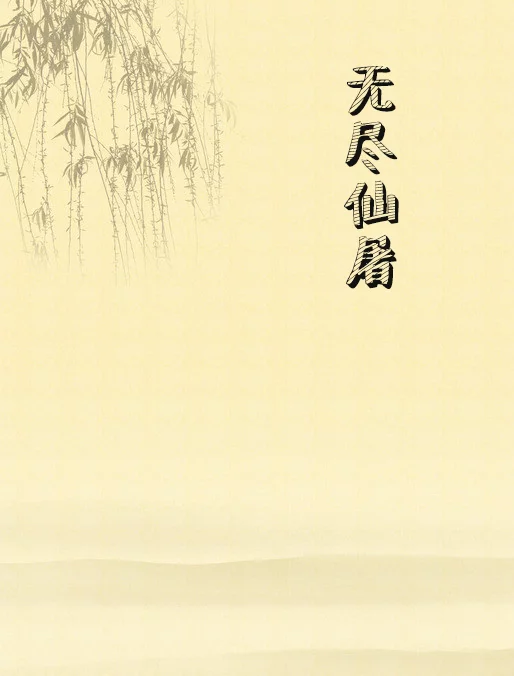 无尽仙屠